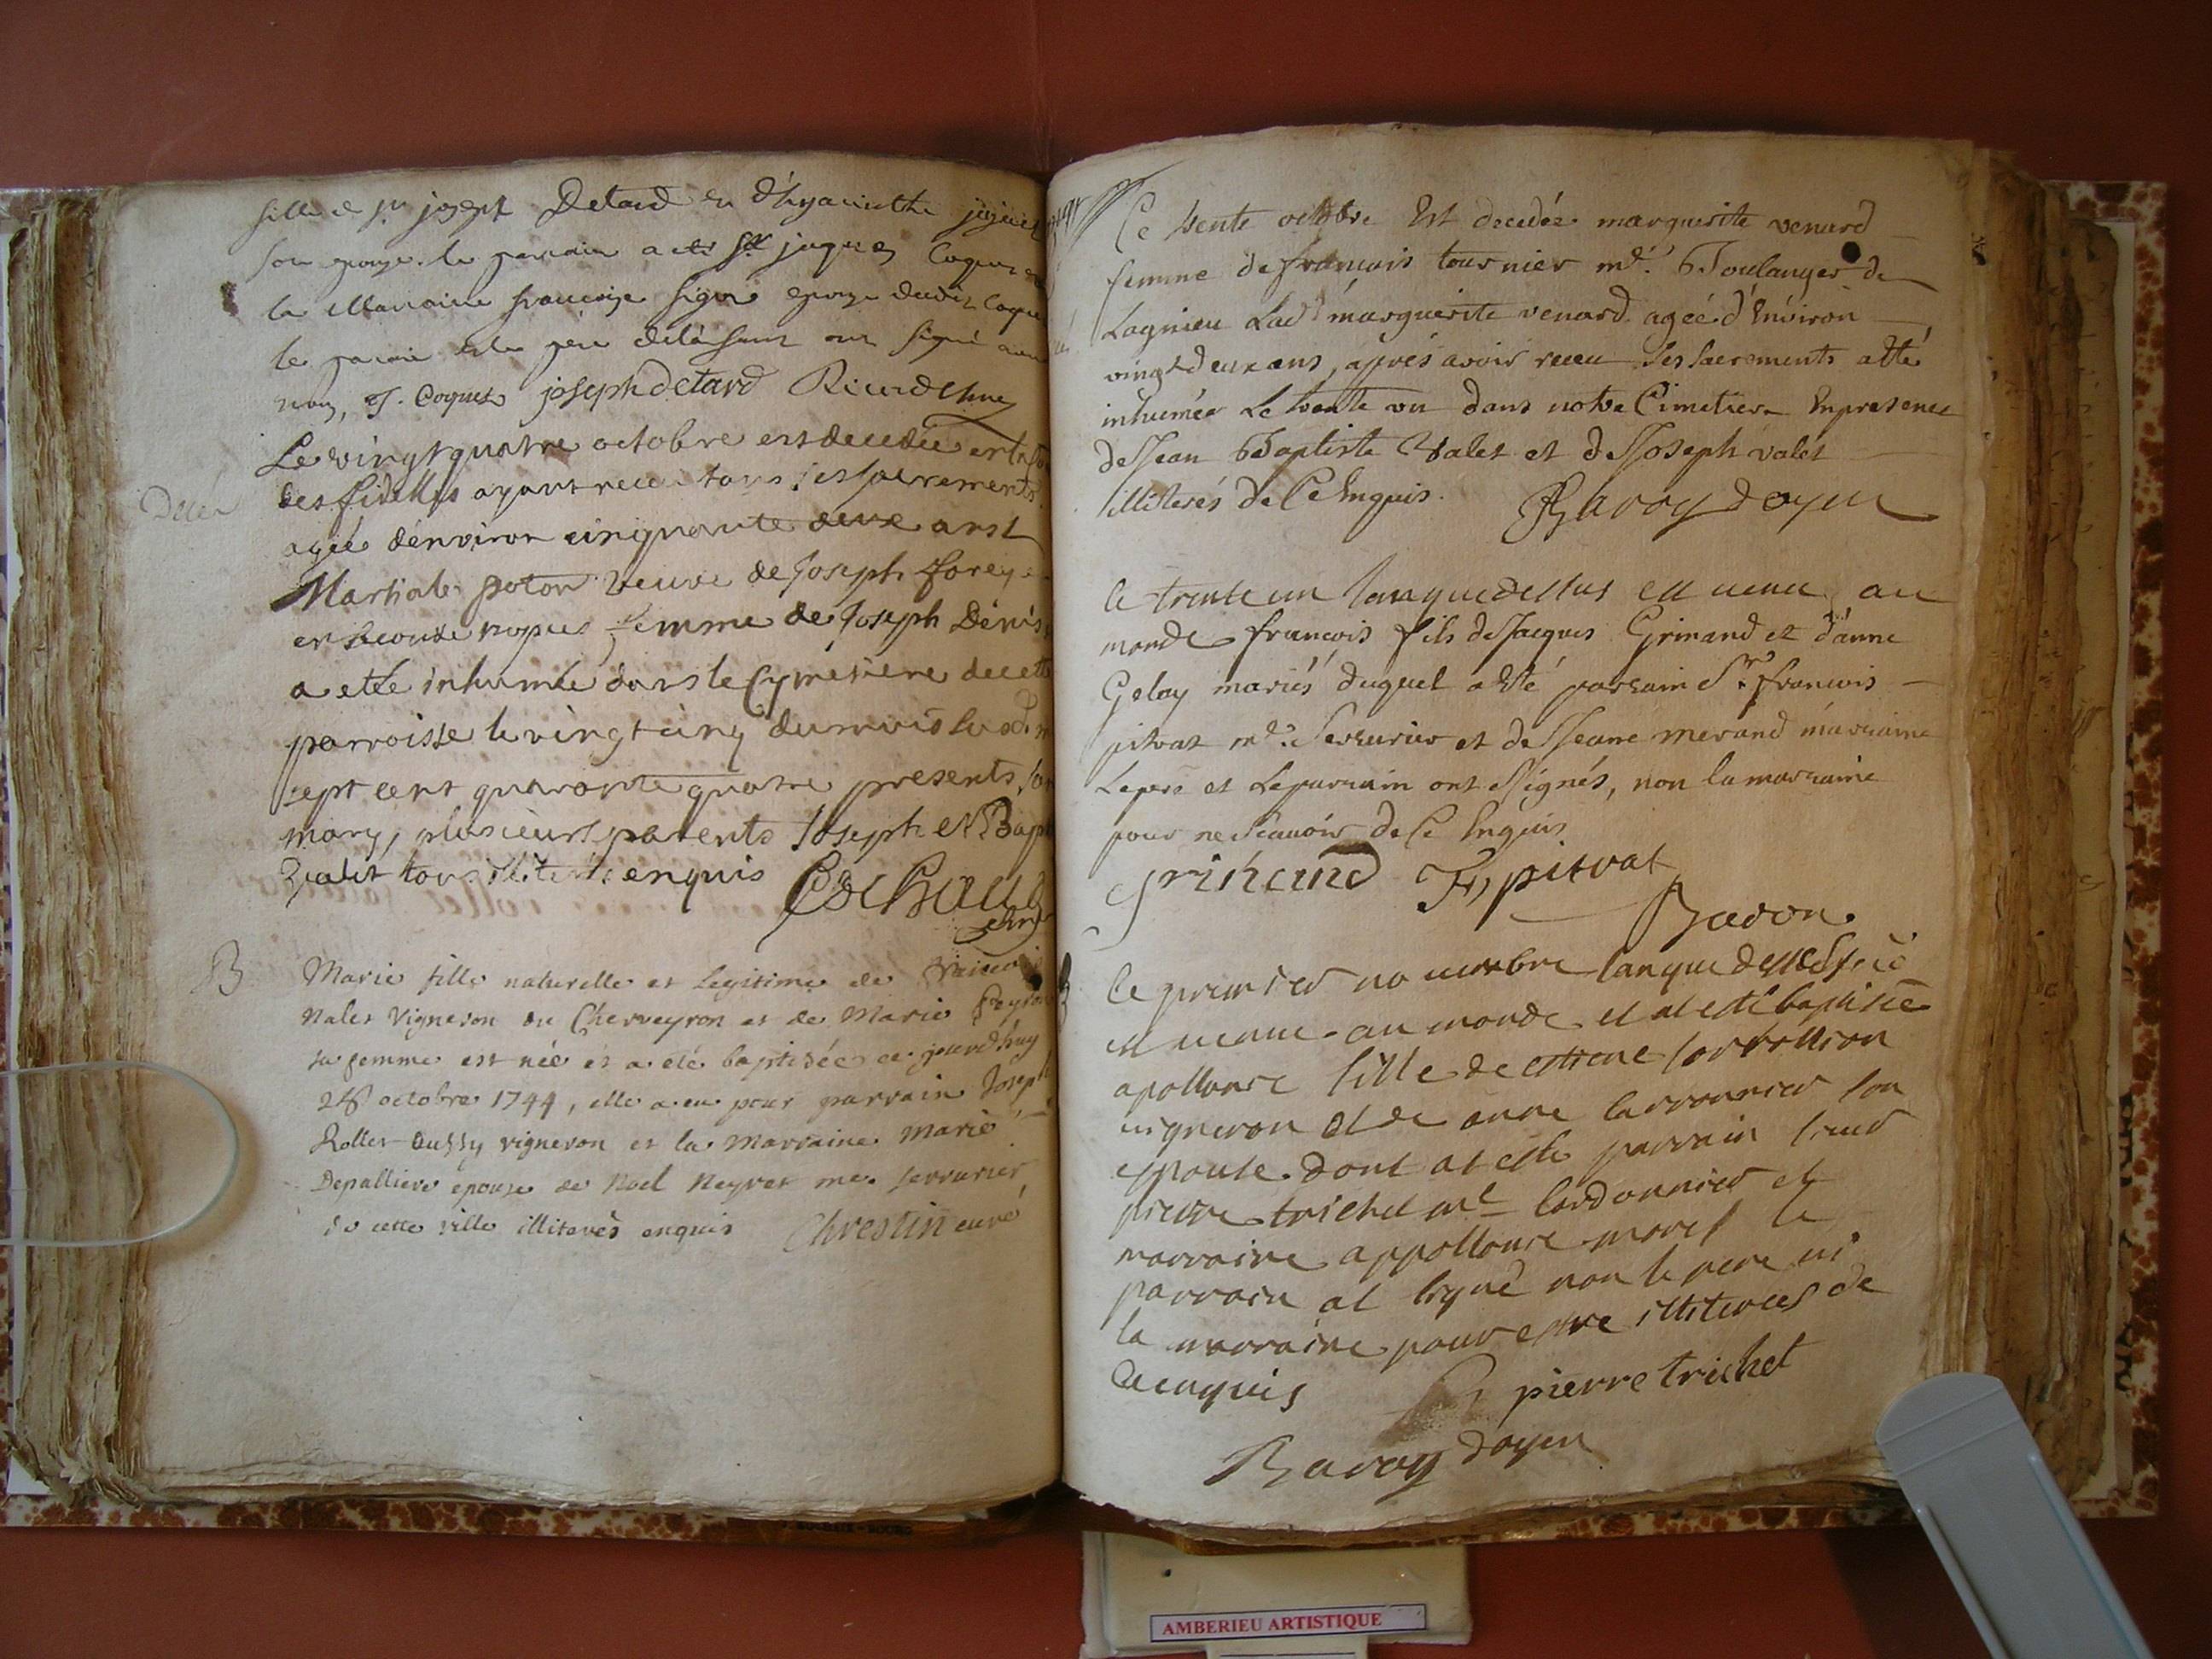 fille de sr joseph Detard et d'hyacinthe
son epouze. le parrain a ete sr jaques Coquet
la Marraine françoise epouze dudit Coquet
le parain et le pere de l'enfant ont signé avec
nous, J. Coquet joseph detard
Décès
Le vingt quatre octobre est decedée
des fidelles ayant receu tous ses sacrements
agée d'environ cinquante deux ans
Martiale poton veuve de Joseph forey
en seconde nopces femme de Joseph Denis
a etté inhumée dans le Cymetiere de cette
parroisse le vingt cinq du mois susd.
sept cent quarante quatre presents son
mary, plusieurs parents Joseph et Bap
Valet tous illiterés enquis
B
Marie fille naturelle et legitime de
Nalet Vigneron du Cherveyron et de Marie
sa femme est née et a été baptisée ce jourd'huy
28 octobre 1744, elle a eu pour parrain Joseph
Rollet Aussy vigneron et la Marraine Marie
Depalliere épouse de Noel Neyret me. serrurier
de cette ville illiterés enquis Chrestin curé
Ce trente octobre Est decedée marguerite venard
femme de francois tournier md. Boulanger de
Lagnieu Lad. marguerite venard agéé d'Environ
vingt deux ans, apprés avoir receu ses sacrements a etté
inhumée Le trente un dans notre Cimetiere Enpresence
de Jean Baptiste Valet et de Joseph valet
illiterés de Ce Enquis. Ravoy doyen
le trente un Lan que dessus est venu au
monde francois fils de Jacques Grinand et d'anne
Gelay mariés duquel a Eté parrain Sr. francois
pitrat md. Serrurier et de Jeanne merand marraine
Lepere et Leparrain ont Signés, non la marraine
pour ne Scauoir de Ce Enquis
grinand F, pitrat
le premier novembre lan que dessus
est venue au monde et at esté baptisée
apollonie fille de estiene
vigneron et de anne son
espouse. dont at esté parrain sieur
pierre trichet me Cordonnier et
marraine appollonie morel le
parrain at signé non le pere ni
la marraine pour estre illiterees de
ce enquis pierre trichet
Ravoy doyen
AMBERIEU ARTISTIQUE